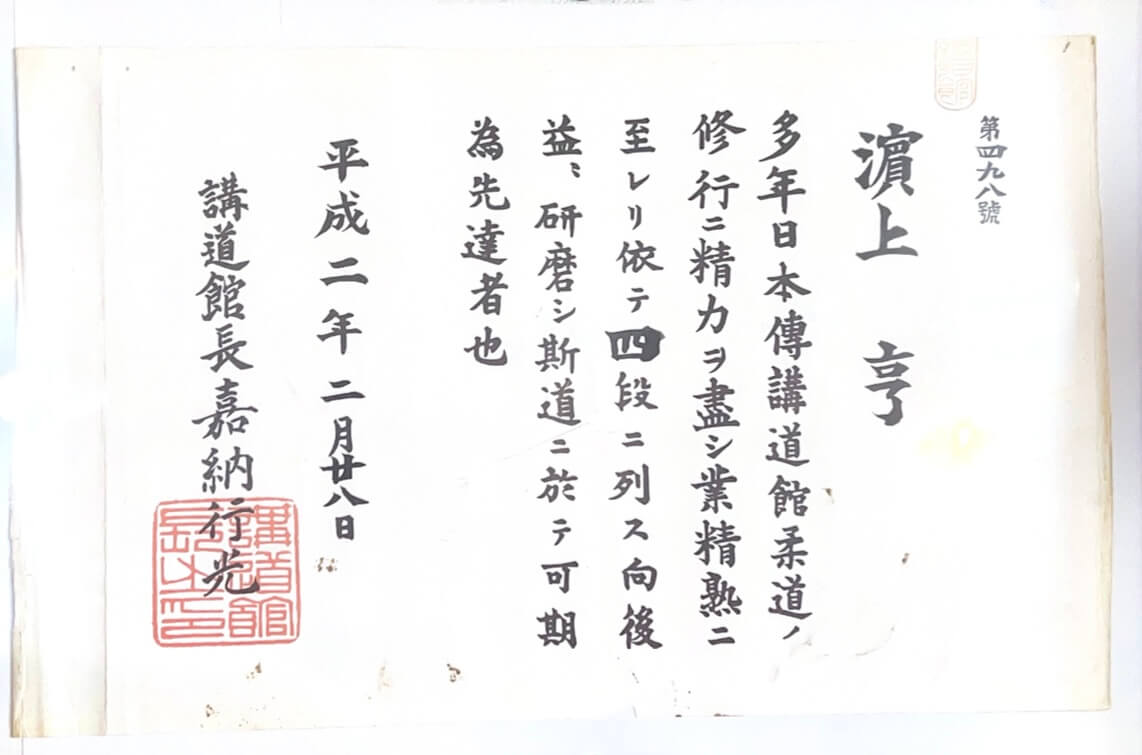 第四九八號
濵上 亨
多年日本傳講道館柔道ノ
修行ニ精力ヲ盡シ業精熟ニ
至レリ依テ四段ニ列ス向後
益〻研磨シ斯道ニ於テ可期
為先達者也
平成二年二月廿八日
講道館長嘉納行光
講道館
長之印